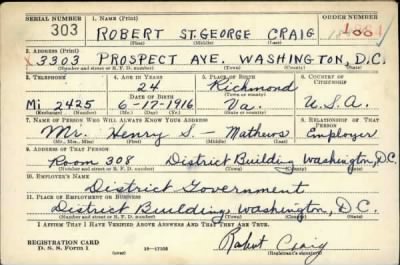 SERIAL NUMBER 1. NAME (Print) ORDER NUMBER
303 ROBERT ST. GEORGE CRAIG
(First) (Middle) (Last)
2. ADDRESS (Print)
3303 PROSPECT AVE. WASHINGTON, D.C.
(Number and street or R. F. D. number) (Town) (County) (State)
3. TELEPHONE 4. AGE IN YEARS 5. PLACE OF BIRTH 6. COUNTRY OF CITIZENSHIP
24 Richmond
DATE OF BIRTH (Town or county)
Mi 2425 6-17-1916 Va. U.S.A.
(Exchange) (Number) (Mo.) (Day) (Yr.) (State or country)
7. NAME OF PERSON WHO WILL ALWAYS KNOW YOUR ADDRESS 8. RELATIONSHIP OF THAT PERSON
Mr. Henry S. — Mathews Employer
(Mr., Mrs., Miss) (First) (Middle) (Last)
9. ADDRESS OF THAT PERSON
Room 308 District Building Washington, D.C.
(Number and street or R. F. D. number) (Town) (County) (State)
10. EMPLOYER'S NAME
District Government
11. PLACE OF EMPLOYMENT OR BUSINESS
District Building, Washington, D.C.
(Number and street or R. F. D. number) (Town) (County) (State)
I AFFIRM THAT I HAVE VERIFIED ABOVE ANSWERS AND THAT THEY ARE TRUE.
REGISTRATION CARD
D. S. S. Form 1 16—17105 Robert Craig
(Registrant's signature)